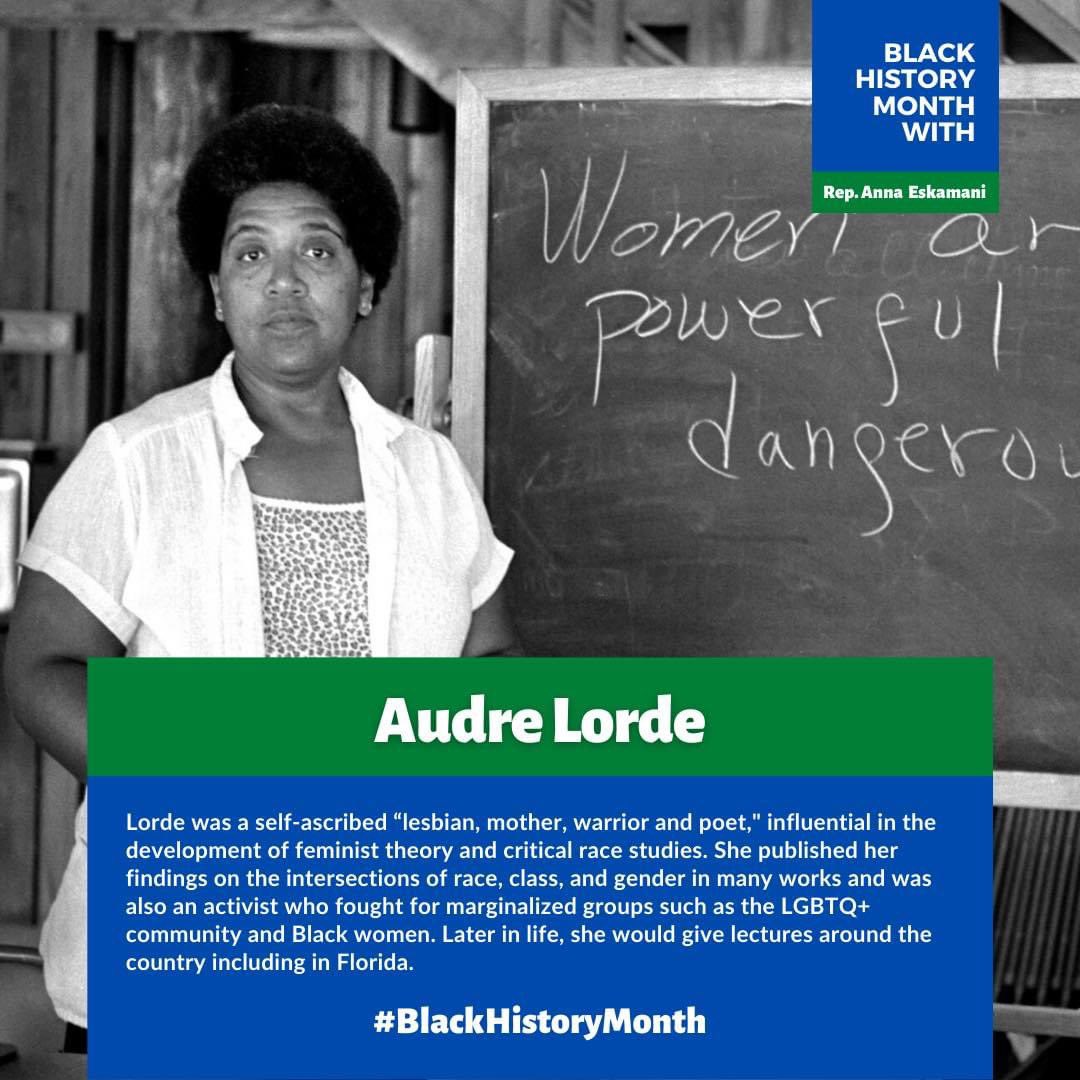 BLACK
HISTORY
MONTH
WITH
Rep. Anna Eskamani
Women ar
powerful
dangerou
Audre Lorde
Lorde was a self-ascribed “lesbian, mother, warrior and poet," influential in the
development of feminist theory and critical race studies. She published her
findings on the intersections of race, class, and gender in many works and was
also an activist who fought for marginalized groups such as the LGBTQ+
community and Black women. Later in life, she would give lectures around the
country including in Florida.
#BlackHistoryMonth